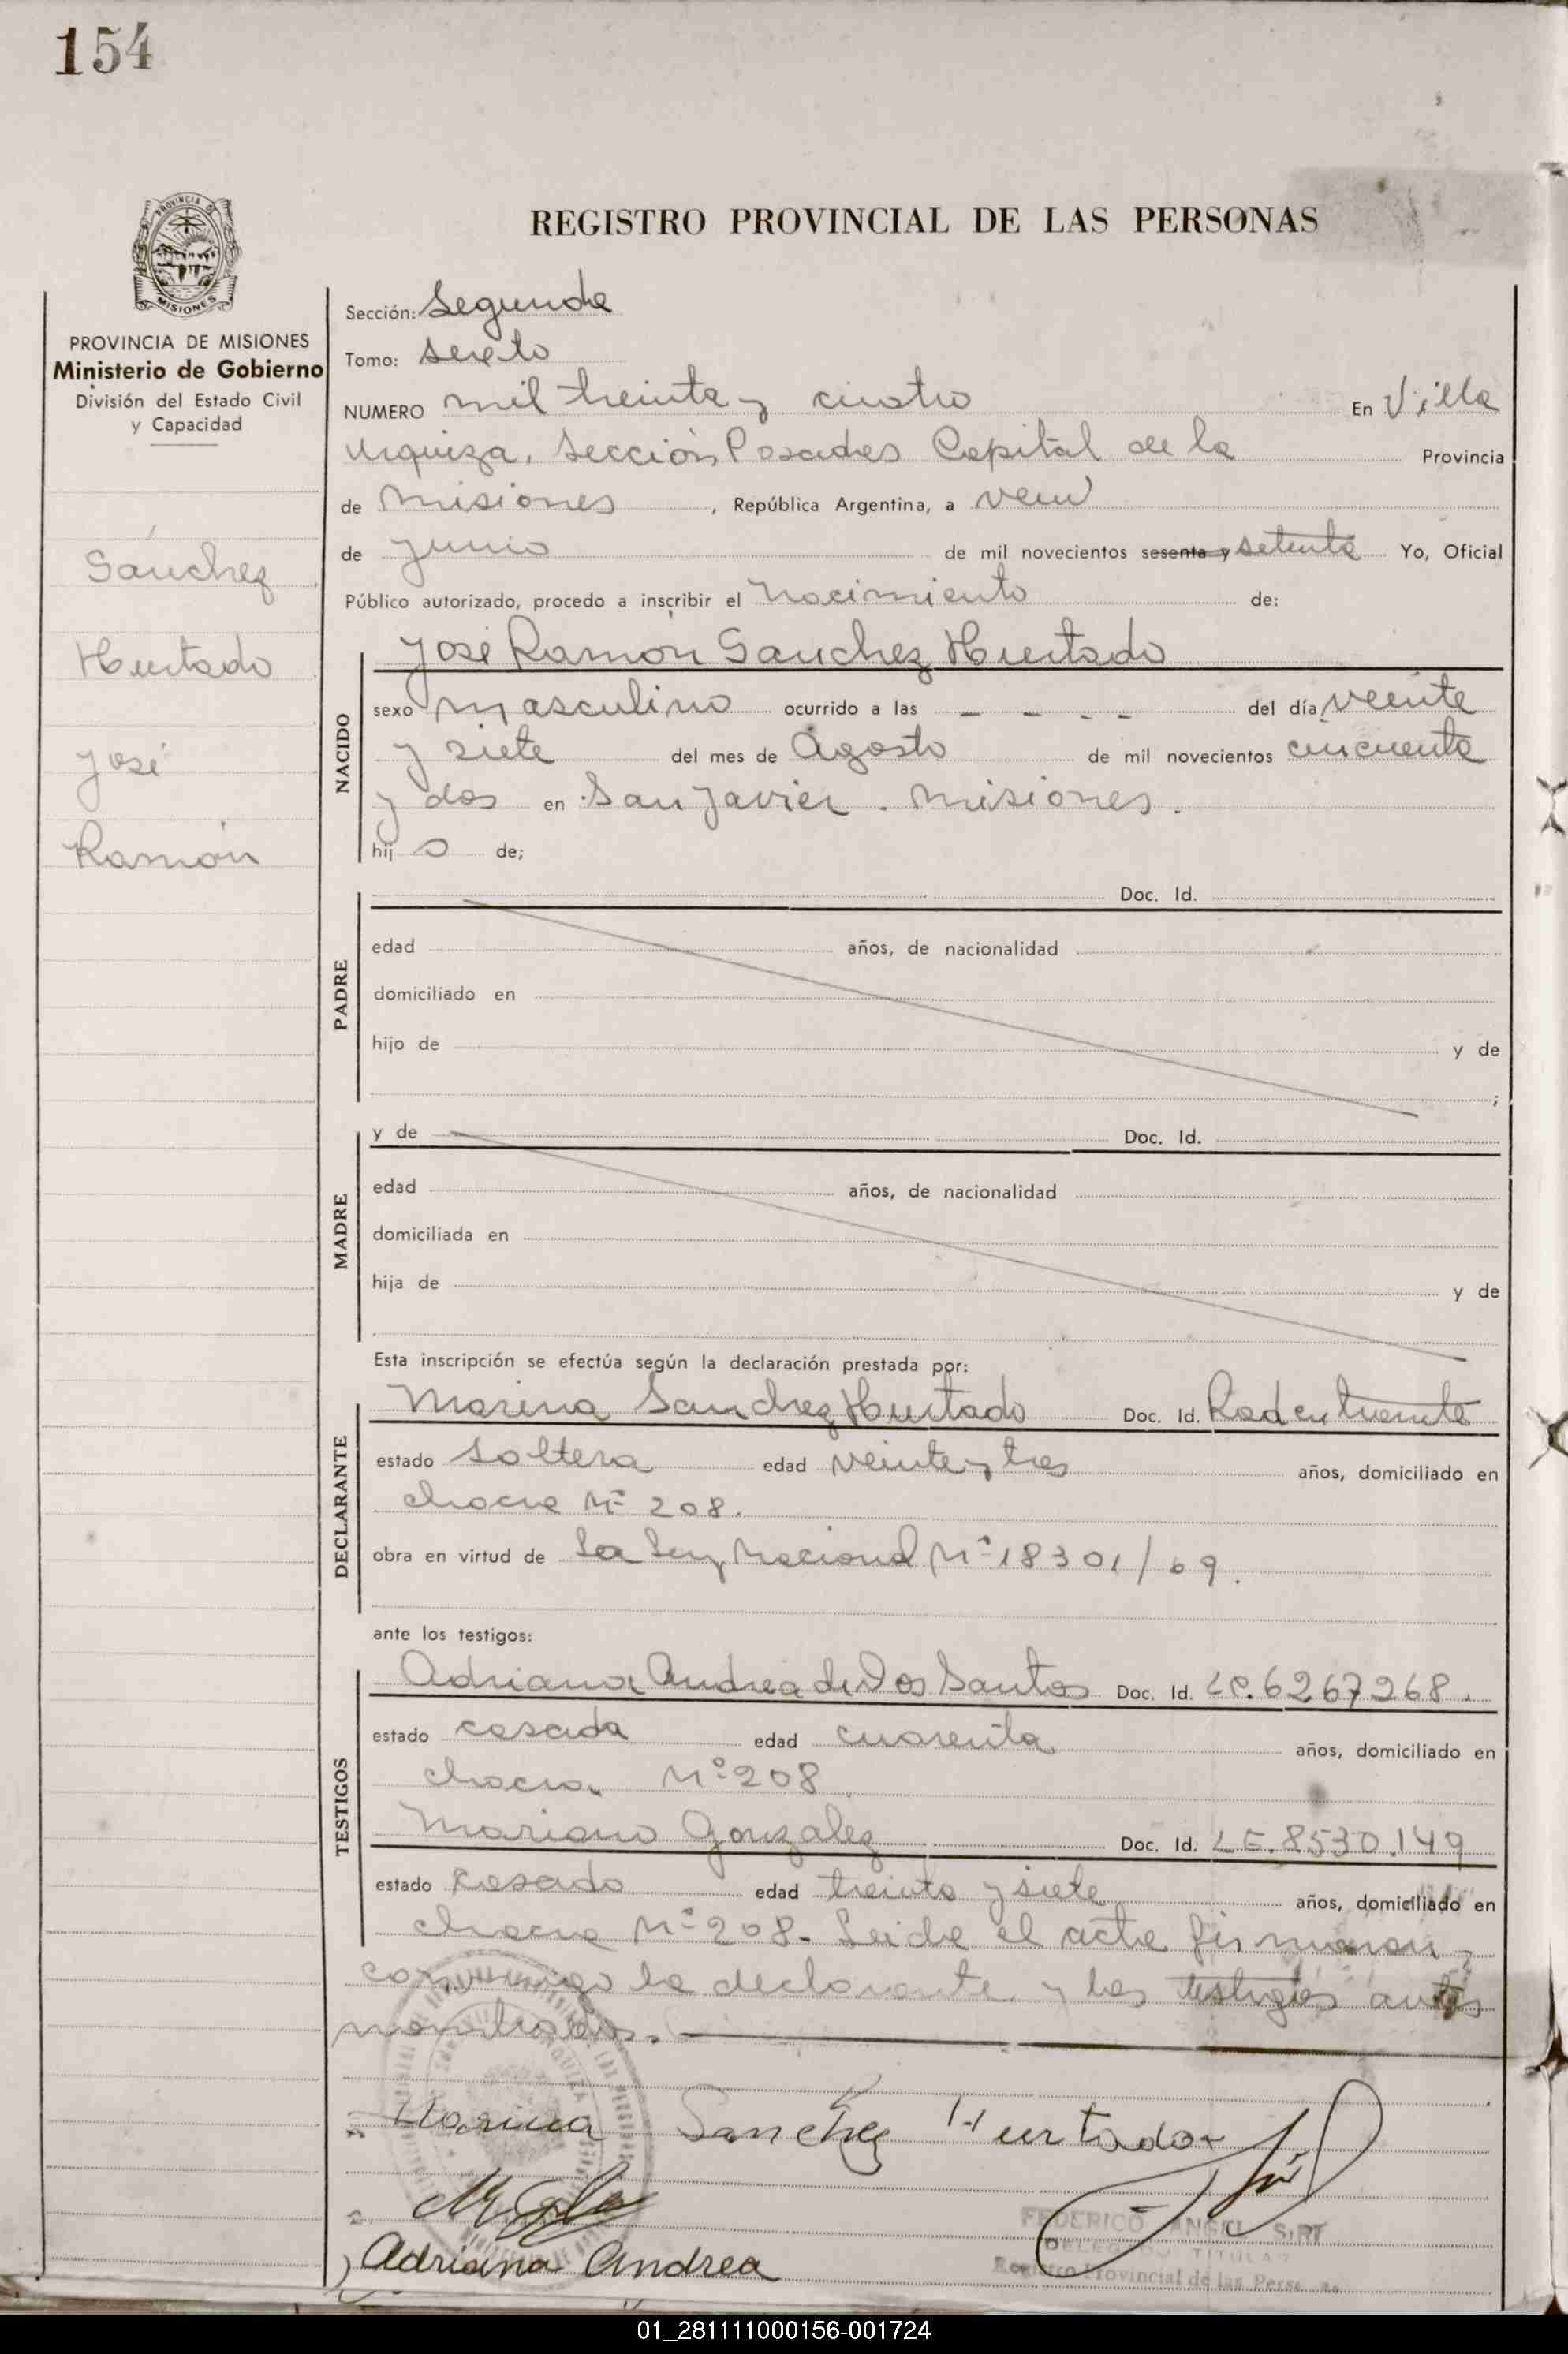 154
REGISTRO PROVINCIAL DE LAS PERSONAS
PROVINCIA DE MISIONES
Ministerio de Gobierno
División del Estado Civil
y Capacidad
Sánchez
Hurtado
José
Ramón
Sección: Segunda
Tomo: Sexto
NUMERO mil treinta y cuatro En Villa
Urquiza, Sección Posadas Capital de la Provincia
de Misiones, República Argentina, a
de Junio de mil novecientos sesenta y setenta Yo, Oficial
Público autorizado, procedo a inscribir el Nacimiento de:
José Ramón Sanchez Hurtado
NACIDO
sexo masculino ocurrido a las - - - - del día veinte
y siete del mes de Agosto de mil novecientos cincuenta
y dos en San Javier. Misiones.
hij o de;
PADRE
Doc. Id.
edad años, de nacionalidad
domiciliado en
hijo de y de
;
MADRE
y de Doc. Id.
edad años, de nacionalidad
domiciliada en
hija de y de
Esta inscripción se efectúa según la declaración prestada por:
DECLARANTE
Marina Sanchez Hurtado Doc. Id.
estado soltera edad veinte y tres años, domiciliado en
chacra Nº 208.
obra en virtud de La Ley Nacional Nº 18301/69.
ante los testigos:
TESTIGOS
Adriana Andrea de Dos Santos Doc. Id. LC. 6267268.
estado casada edad cuarenta años, domiciliado en
chacra Nº 208
Mariano Gonzalez Doc. Id. LE. 8530.149
estado casado edad treinta y siete años, domiciliado en
chacra Nº 208. Leida el acta firmaron
conmigo la declarante y los testigos antes
nombrados.
Marina Sanchez Hurtado
Adriana Andrea
FEDERICO ANGEL
DELEGADO TITULAR
Registro Provincial de las Personas
01_281111000156-001724